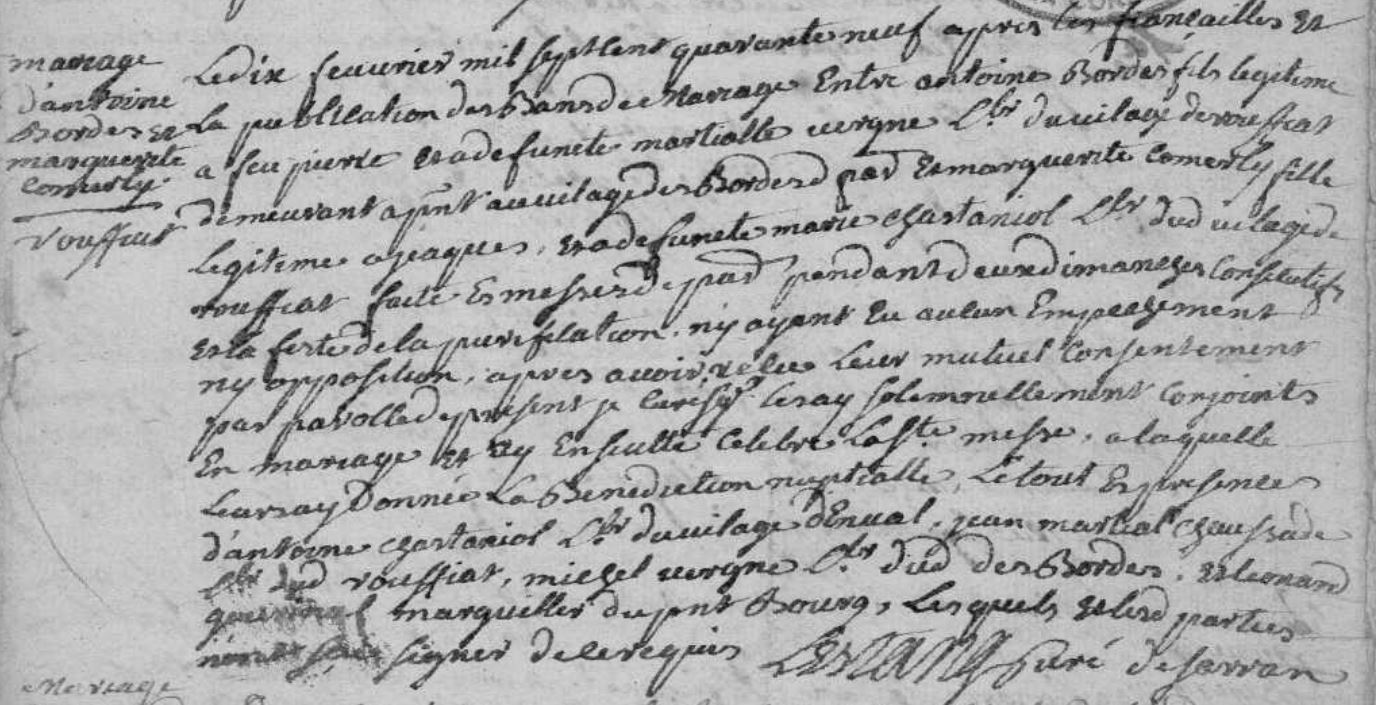 mariage
d'antoine
Bordes et
marguerite
Comerly.
rouffiat
Le dix feuvrier mil sept Cent quarante neuf apres les fiançailles et
La publication des Bans de Mariage Entre antoine Bordes fils legiteme
a feu pierre et a defuncte martialle vergne L.br du vilage de rouffiat
demeurant a pnt au vilage des Bordes d par et marguerite Comerly fille
Legiteme a jeaques, et a defuncte marie Chastaniol L.br dud vilage de
rouffiat faite Es messes de par pendant deux dimanches Consecutifs
et la feste de la purification, n'y ayant Eu aucun Empeschement
ny opposition, apres avoir recue Leur mutuel Consentement
par parolle de present je Curé sig.é Les ay solemnellement Conjoints
En mariage et ay Ensuitte Celebré La S.te messe, a laquelle
Leur ay Donnée La Benediction nuptialle, Le tout En presence
d'antoine Chastaniol L.br du vilage d'Enval, jean martial Chaussade
L.br dud rouffiat, michel vergne L.br dud des Bordes, et leonard
marguiller du pnt Bourg, Lesquels et lesd parties
n'ont sceu signer de ce requis Curé de Sarran
Mariage